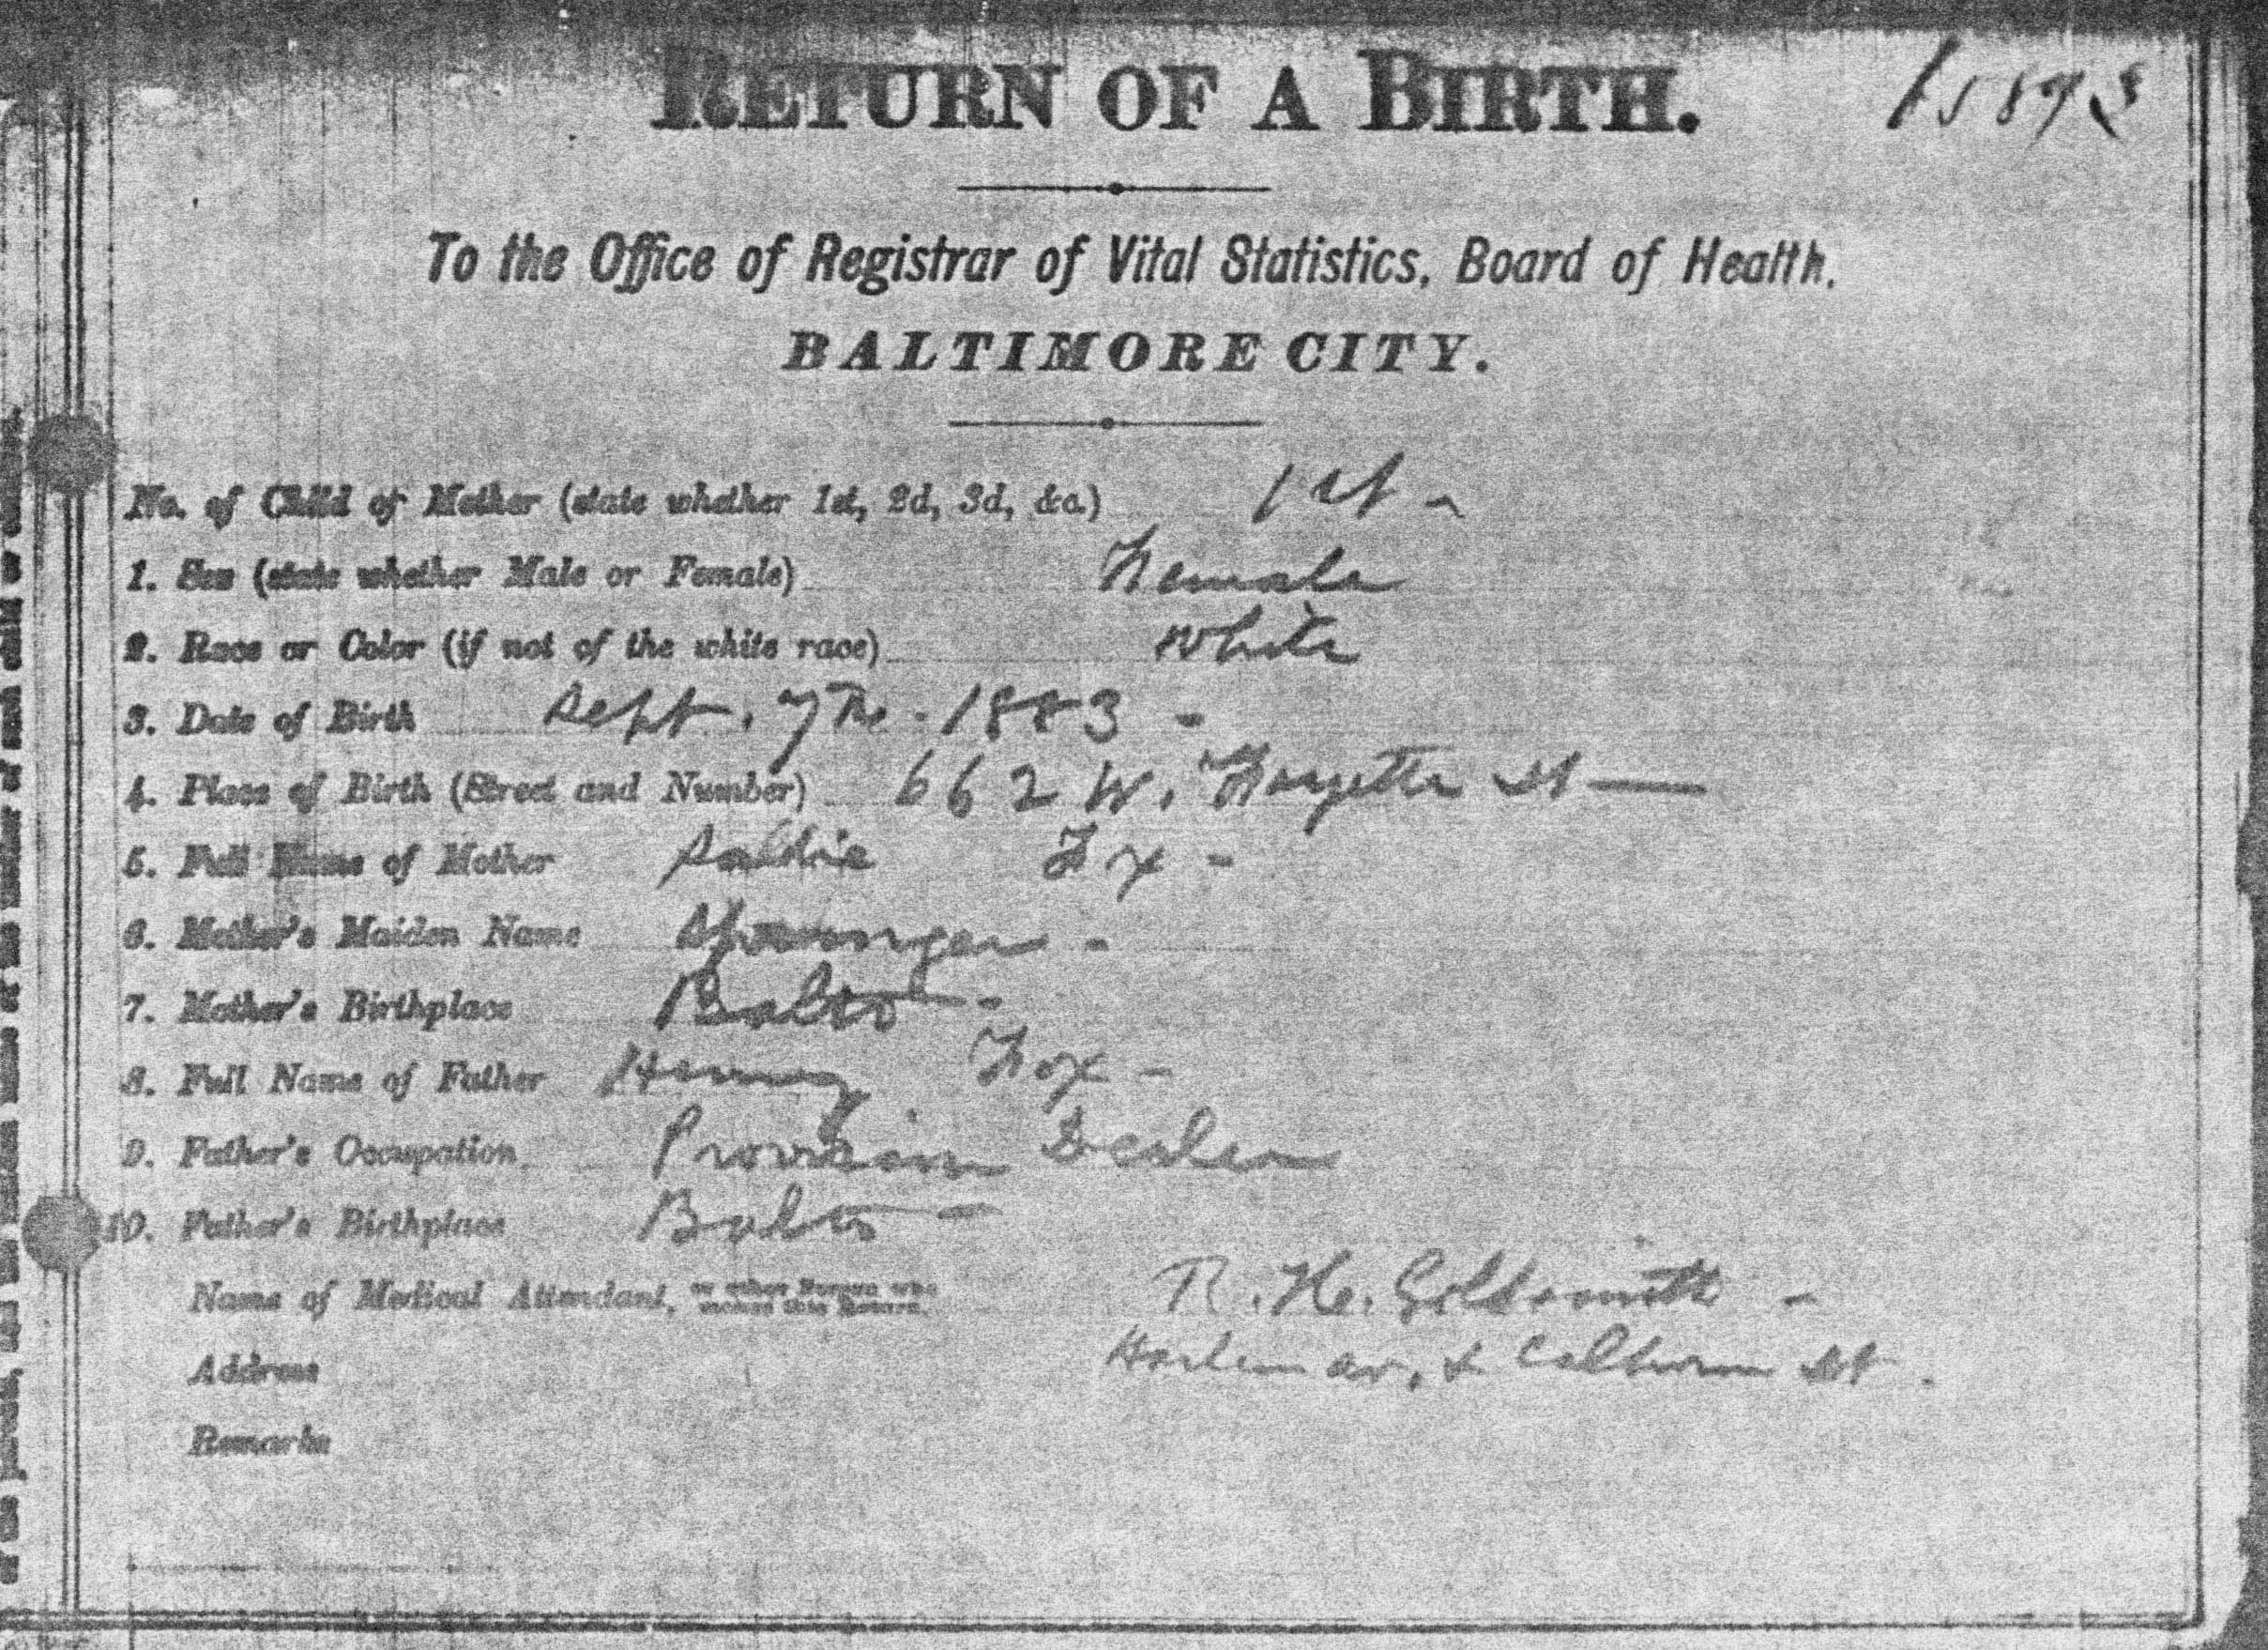 RETURN OF A BIRTH.
To the Office of Registrar of Vital Statistics, Board of Health,
BALTIMORE CITY.
No. of Child of Mother (state whether 1st, 2d, 3d, &c.) 1st -
1. Sex (state whether Male or Female) Female
2. Race or Color (if not of the white race) White
3. Date of Birth Sept. 7th. 1883 -
4. Place of Birth (Street and Number) 662 W. Fayette St —
5. Full Name of Mother Fox -
6. Mother's Maiden Name
7. Mother's Birthplace Balto -
8. Full Name of Father Henry Fox -
9. Father's Occupation Provision Dealer
10. Father's Birthplace Balto -
Name of Medical Attendant, or other Person who makes this Return. R. H. Goldsmith -
Address Harlem av. & Calhoun St.
Remarks